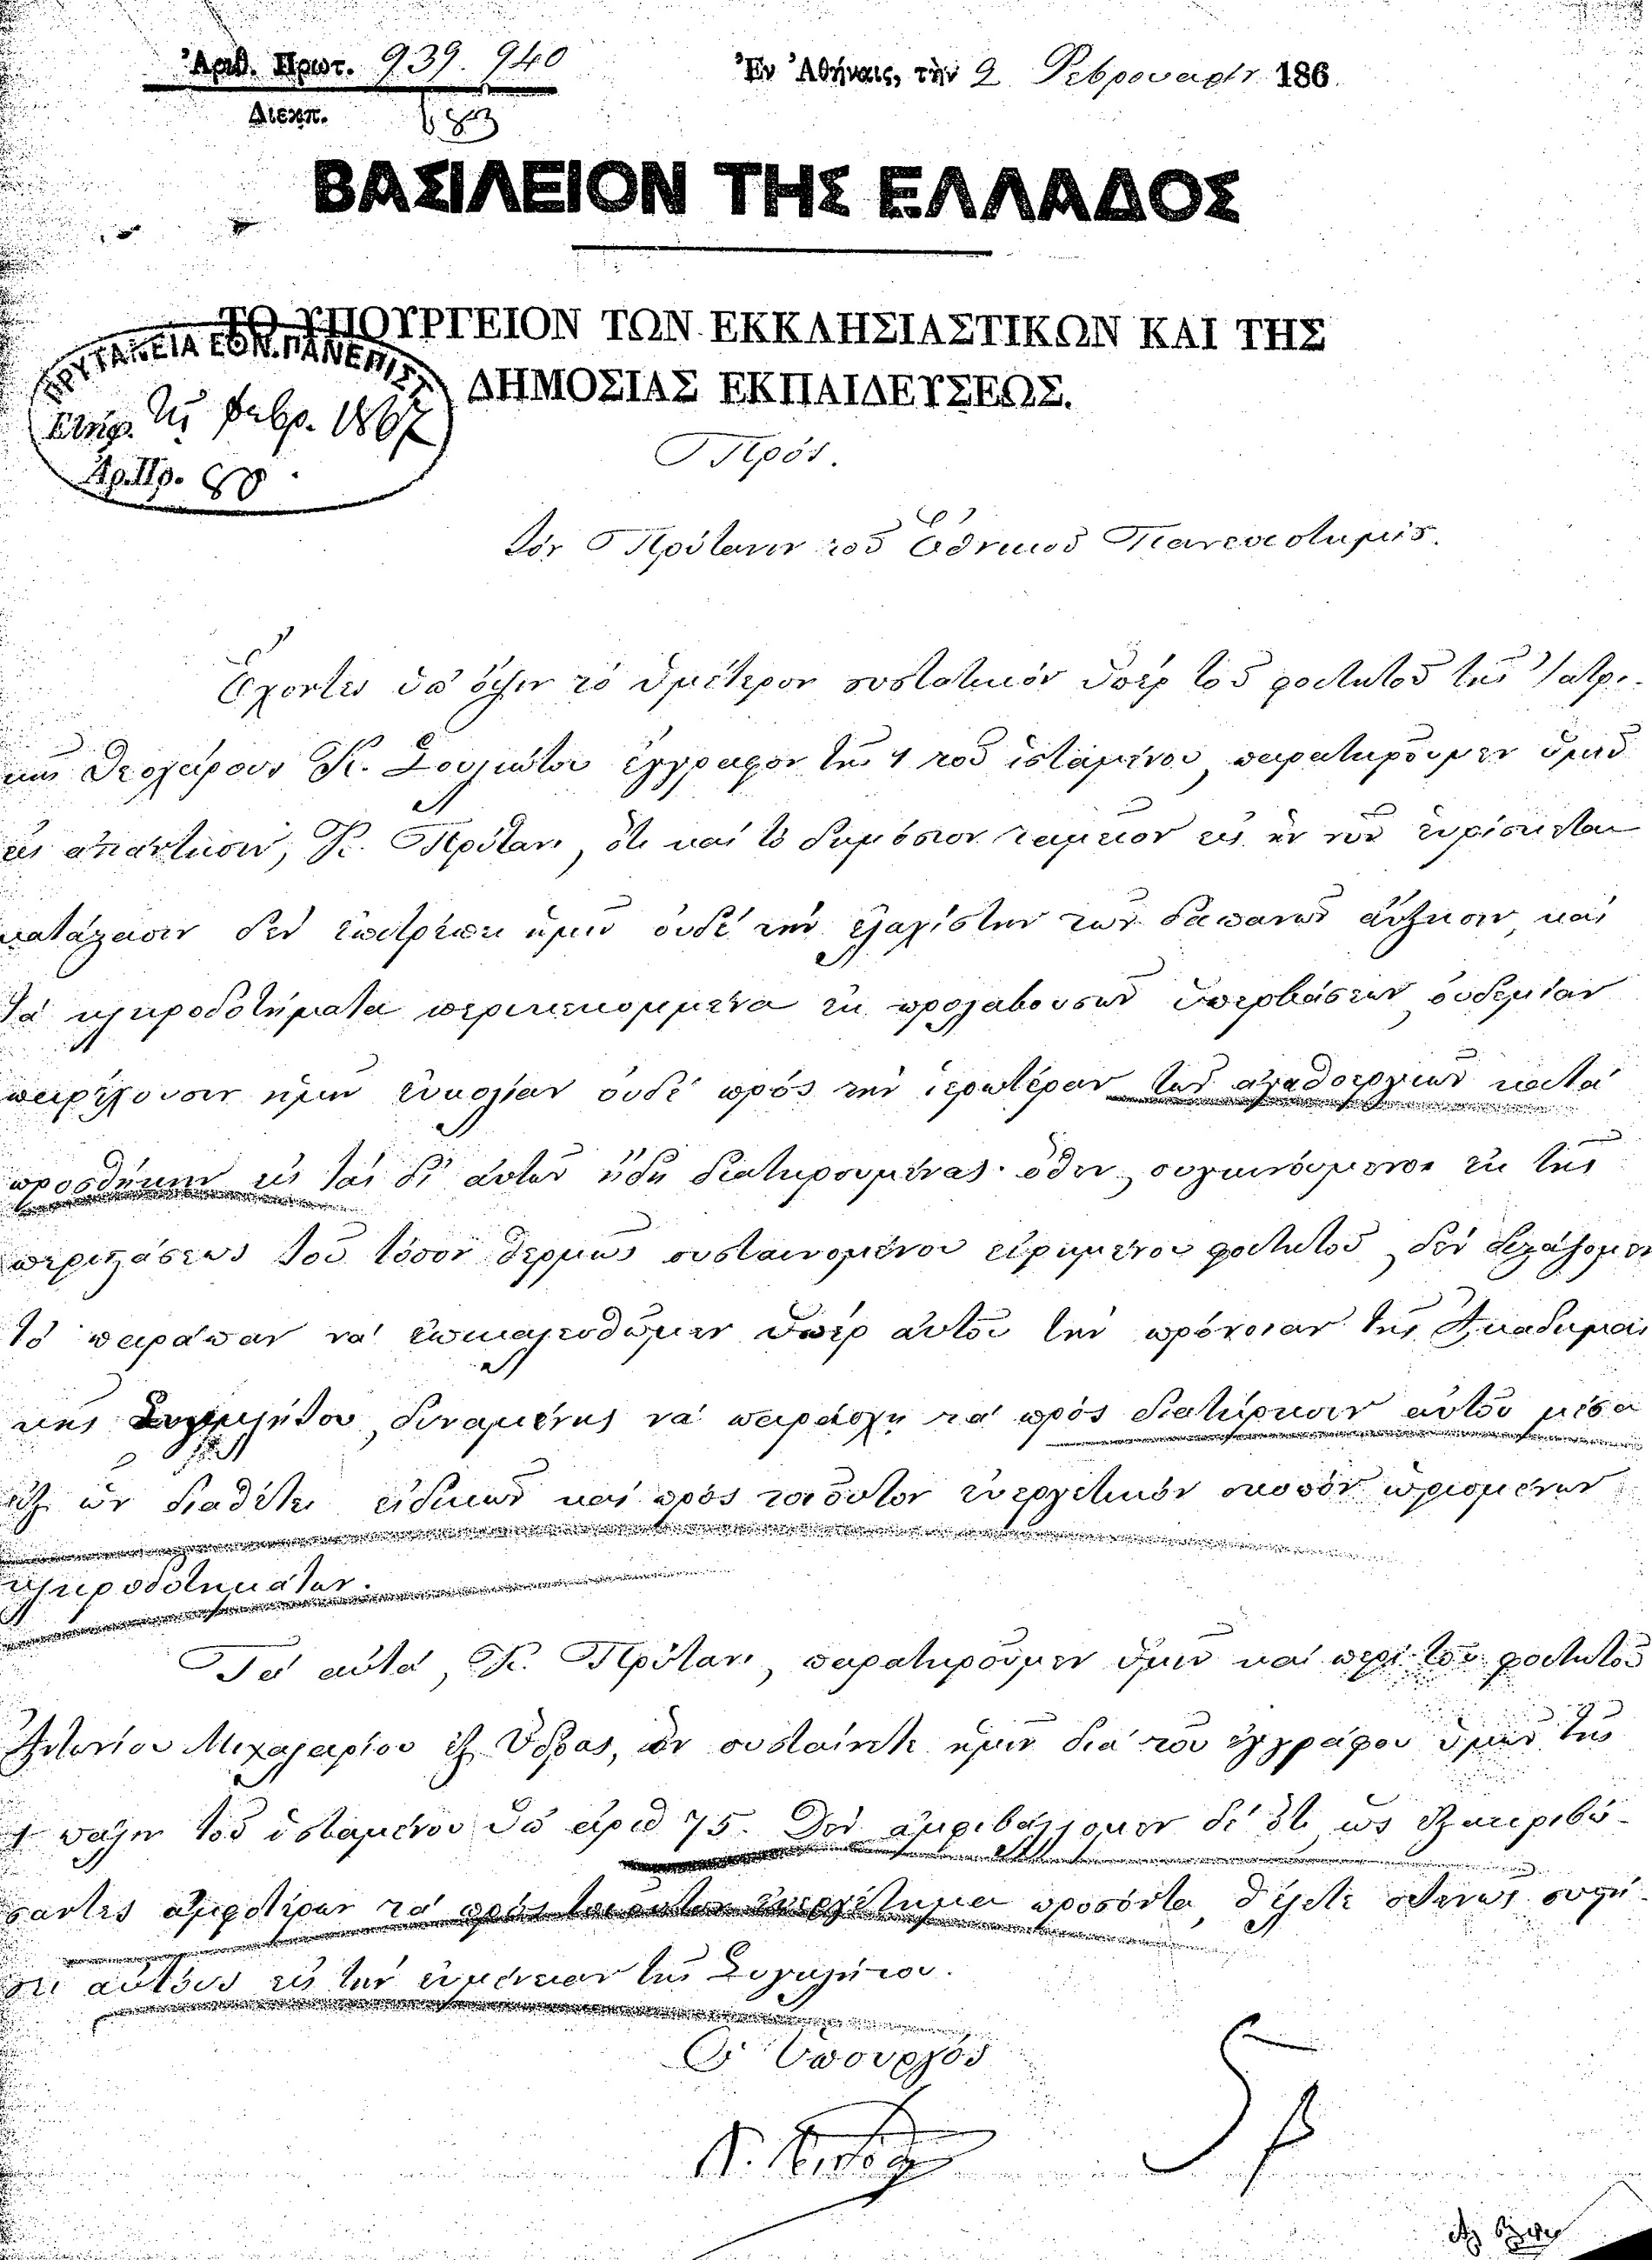 Ἀριθ. Πρωτ. 939. 940
Διεκπ. 683
Ἐν Ἀθήναις, τὴν 9 Φεβρουαρίου 186
ΒΑΣΙΛΕΙΟΝ ΤΗΣ ΕΛΛΑΔΟΣ
ΤΟ ΥΠΟΥΡΓΕΙΟΝ ΤΩΝ ΕΚΚΛΗΣΙΑΣΤΙΚΩΝ ΚΑΙ ΤΗΣ
ΔΗΜΟΣΙΑΣ ΕΚΠΑΙΔΕΥΣΕΩΣ.
ΠΡΥΤΑΝΕΙΑ ΕΘΝ. ΠΑΝΕΠΙΣΤ
Ἐλήφ. τῇ Φεβρ. 1867
Ἀρ. Πρ.
Πρός.
τόν Πρύτανιν τοῦ Ἐθνικοῦ Πανεπιστημίου.
Ἔχοντες ὑπ' ὄψιν τό ὑμέτερον συστατικόν ὑπέρ τοῦ φοιτητοῦ τῆς Ἰατρι-
κῆς Θεολάρους Κ. Σουλιώτου ἔγγραφον τῆς 4 τοῦ ἱσταμένου, παρατηροῦμεν ὑμῖν
εἰς ἀπάντησιν, Κ. Πρύτανι, ὅτι καί τό δημόσιον ταμεῖον εἰς ἥν νῦν εὑρίσκεται
κατάστασιν δέν ἐπιτρέπει ἡμῖν οὐδέ τήν ἐλαχίστην τῶν δαπανῶν αὔξησιν, καί
τά κληροδοτήματα περικεκομμένα ἐκ προλαβουσῶν ὑπερβάσεων, οὐδεμίαν
παρέχουσιν ἡμῖν εὐκολίαν οὐδέ πρός τήν ἱερωτέραν τῶν ἀγαθοεργιῶν κατά
προσθήκην εἰς τάς δι' αὐτῶν ἤδη διατηρουμένας· ὅθεν, συγκινούμενοι ἐκ τῆς
περιστάσεως τοῦ τόσον θερμῶς συσταινομένου εἰρημένου φοιτητοῦ, δέν διστάζομεν
τό παράπαν νά ἐπικαλεσθῶμεν ὑπέρ αὐτοῦ τήν πρόνοιαν τῆς Ἀκαδημαϊ
κῆς Συγκλήτου, δυναμένης νά παράσχῃ τά πρός διατήρησιν αὐτοῦ μέσα
ἐξ ὧν διαθέτει εἰδικῶς καί πρός τοιοῦτον εὐεργετικόν σκοπόν ὡρισμένων
κληροδοτημάτων.
Τά αὐτά, Κ. Πρύτανι, παρατηροῦμεν ὑμῖν καί περί τοῦ φοιτητοῦ
Ἀντωνίου Μιχαλαρίου ἐξ Ὕδρας, ὅν συσταίνετε ἡμῖν διά τοῦ ἐγγράφου ὑμῶν τῆς
4 πάλιν τοῦ ἱσταμένου ὑπ' ἀριθ 75. Δέν ἀμφιβάλλομεν δέ ὅτι, ὡς ἐξακριβώ-
σαντες ἀμφοτέρων τά πρός τοιοῦτον εὐεργέτημα προσόντα, θέλετε συστή-
σει αὐτούς εἰς τήν εὐμένειαν τῆς Συγκλήτου.
Ὁ Ὑπουργός